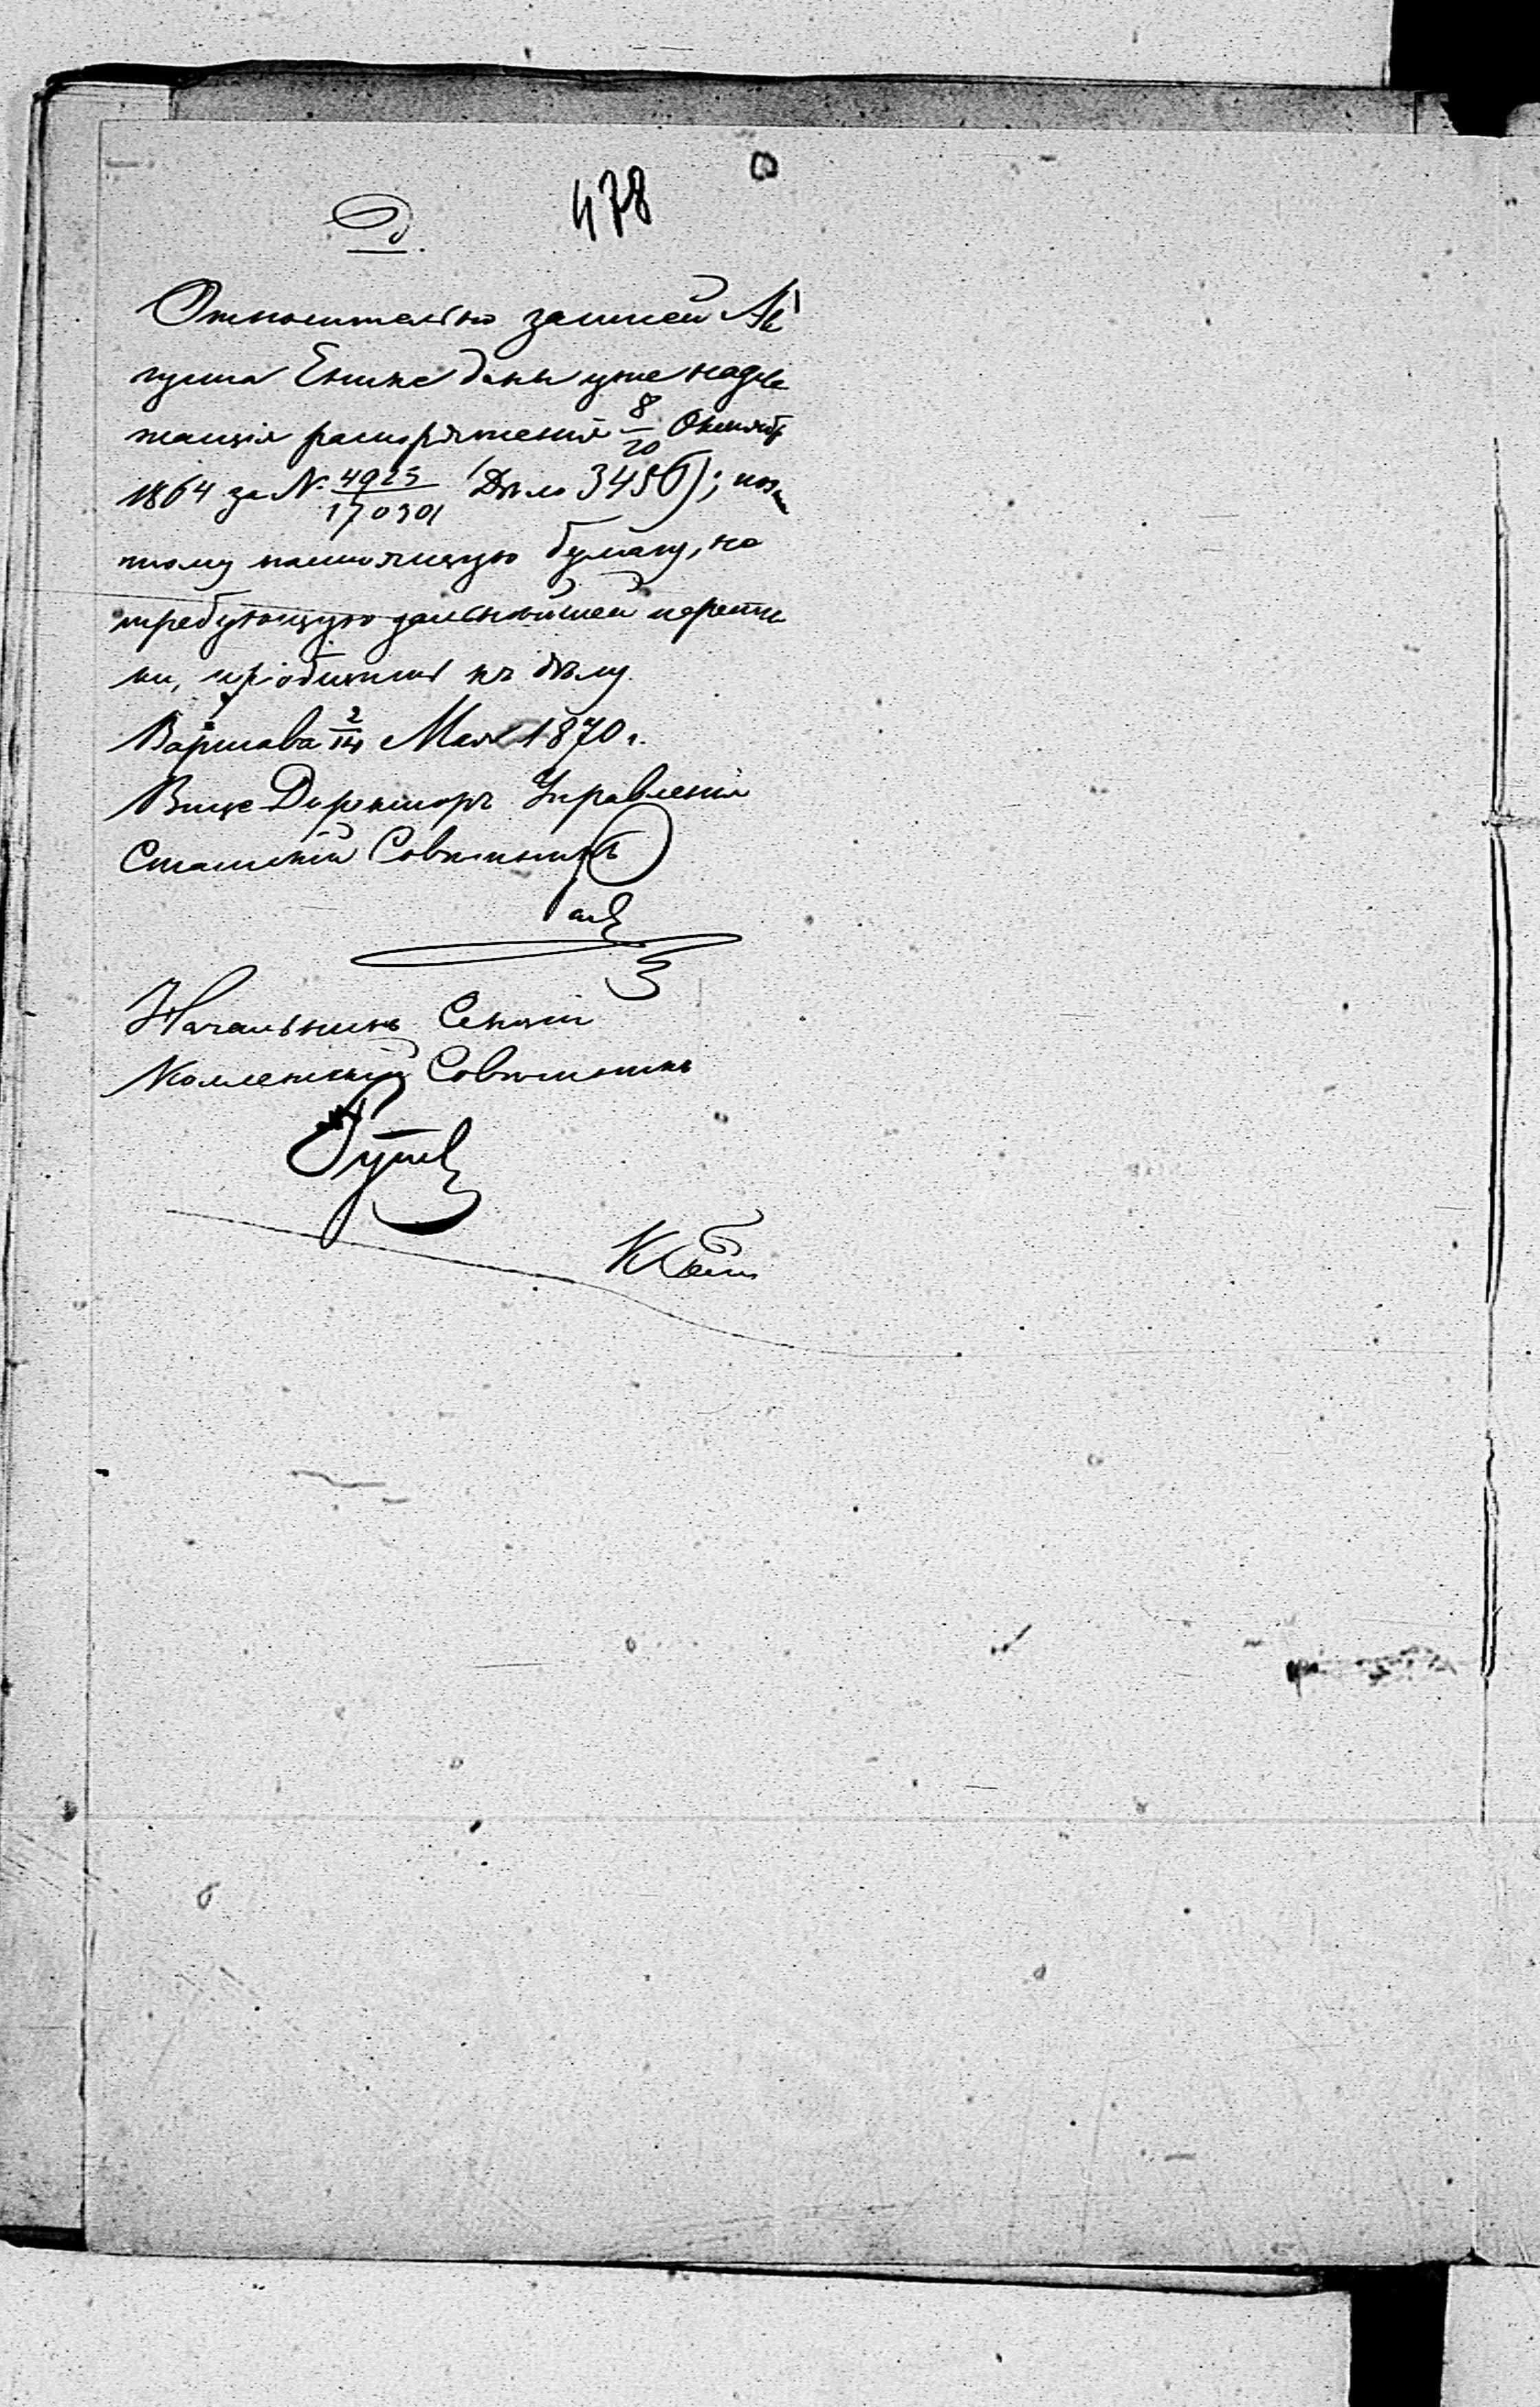 478
Относительно записей Ав
густа Енике даны уже надле
жащія распоряженія 8/20 Октября
1864 за № 4923/170301 (Дѣло 3456); поэ
тому настоящую бумагу, не
требующую дальнѣйшей перепис
ки, пріобщить къ дѣлу.
Варшава 2/14 Мая 1870 г.
Вице Директоръ Управленія
Статскій Совѣтникъ
Начальникъ Секціи
Коллежскій Совѣтникъ